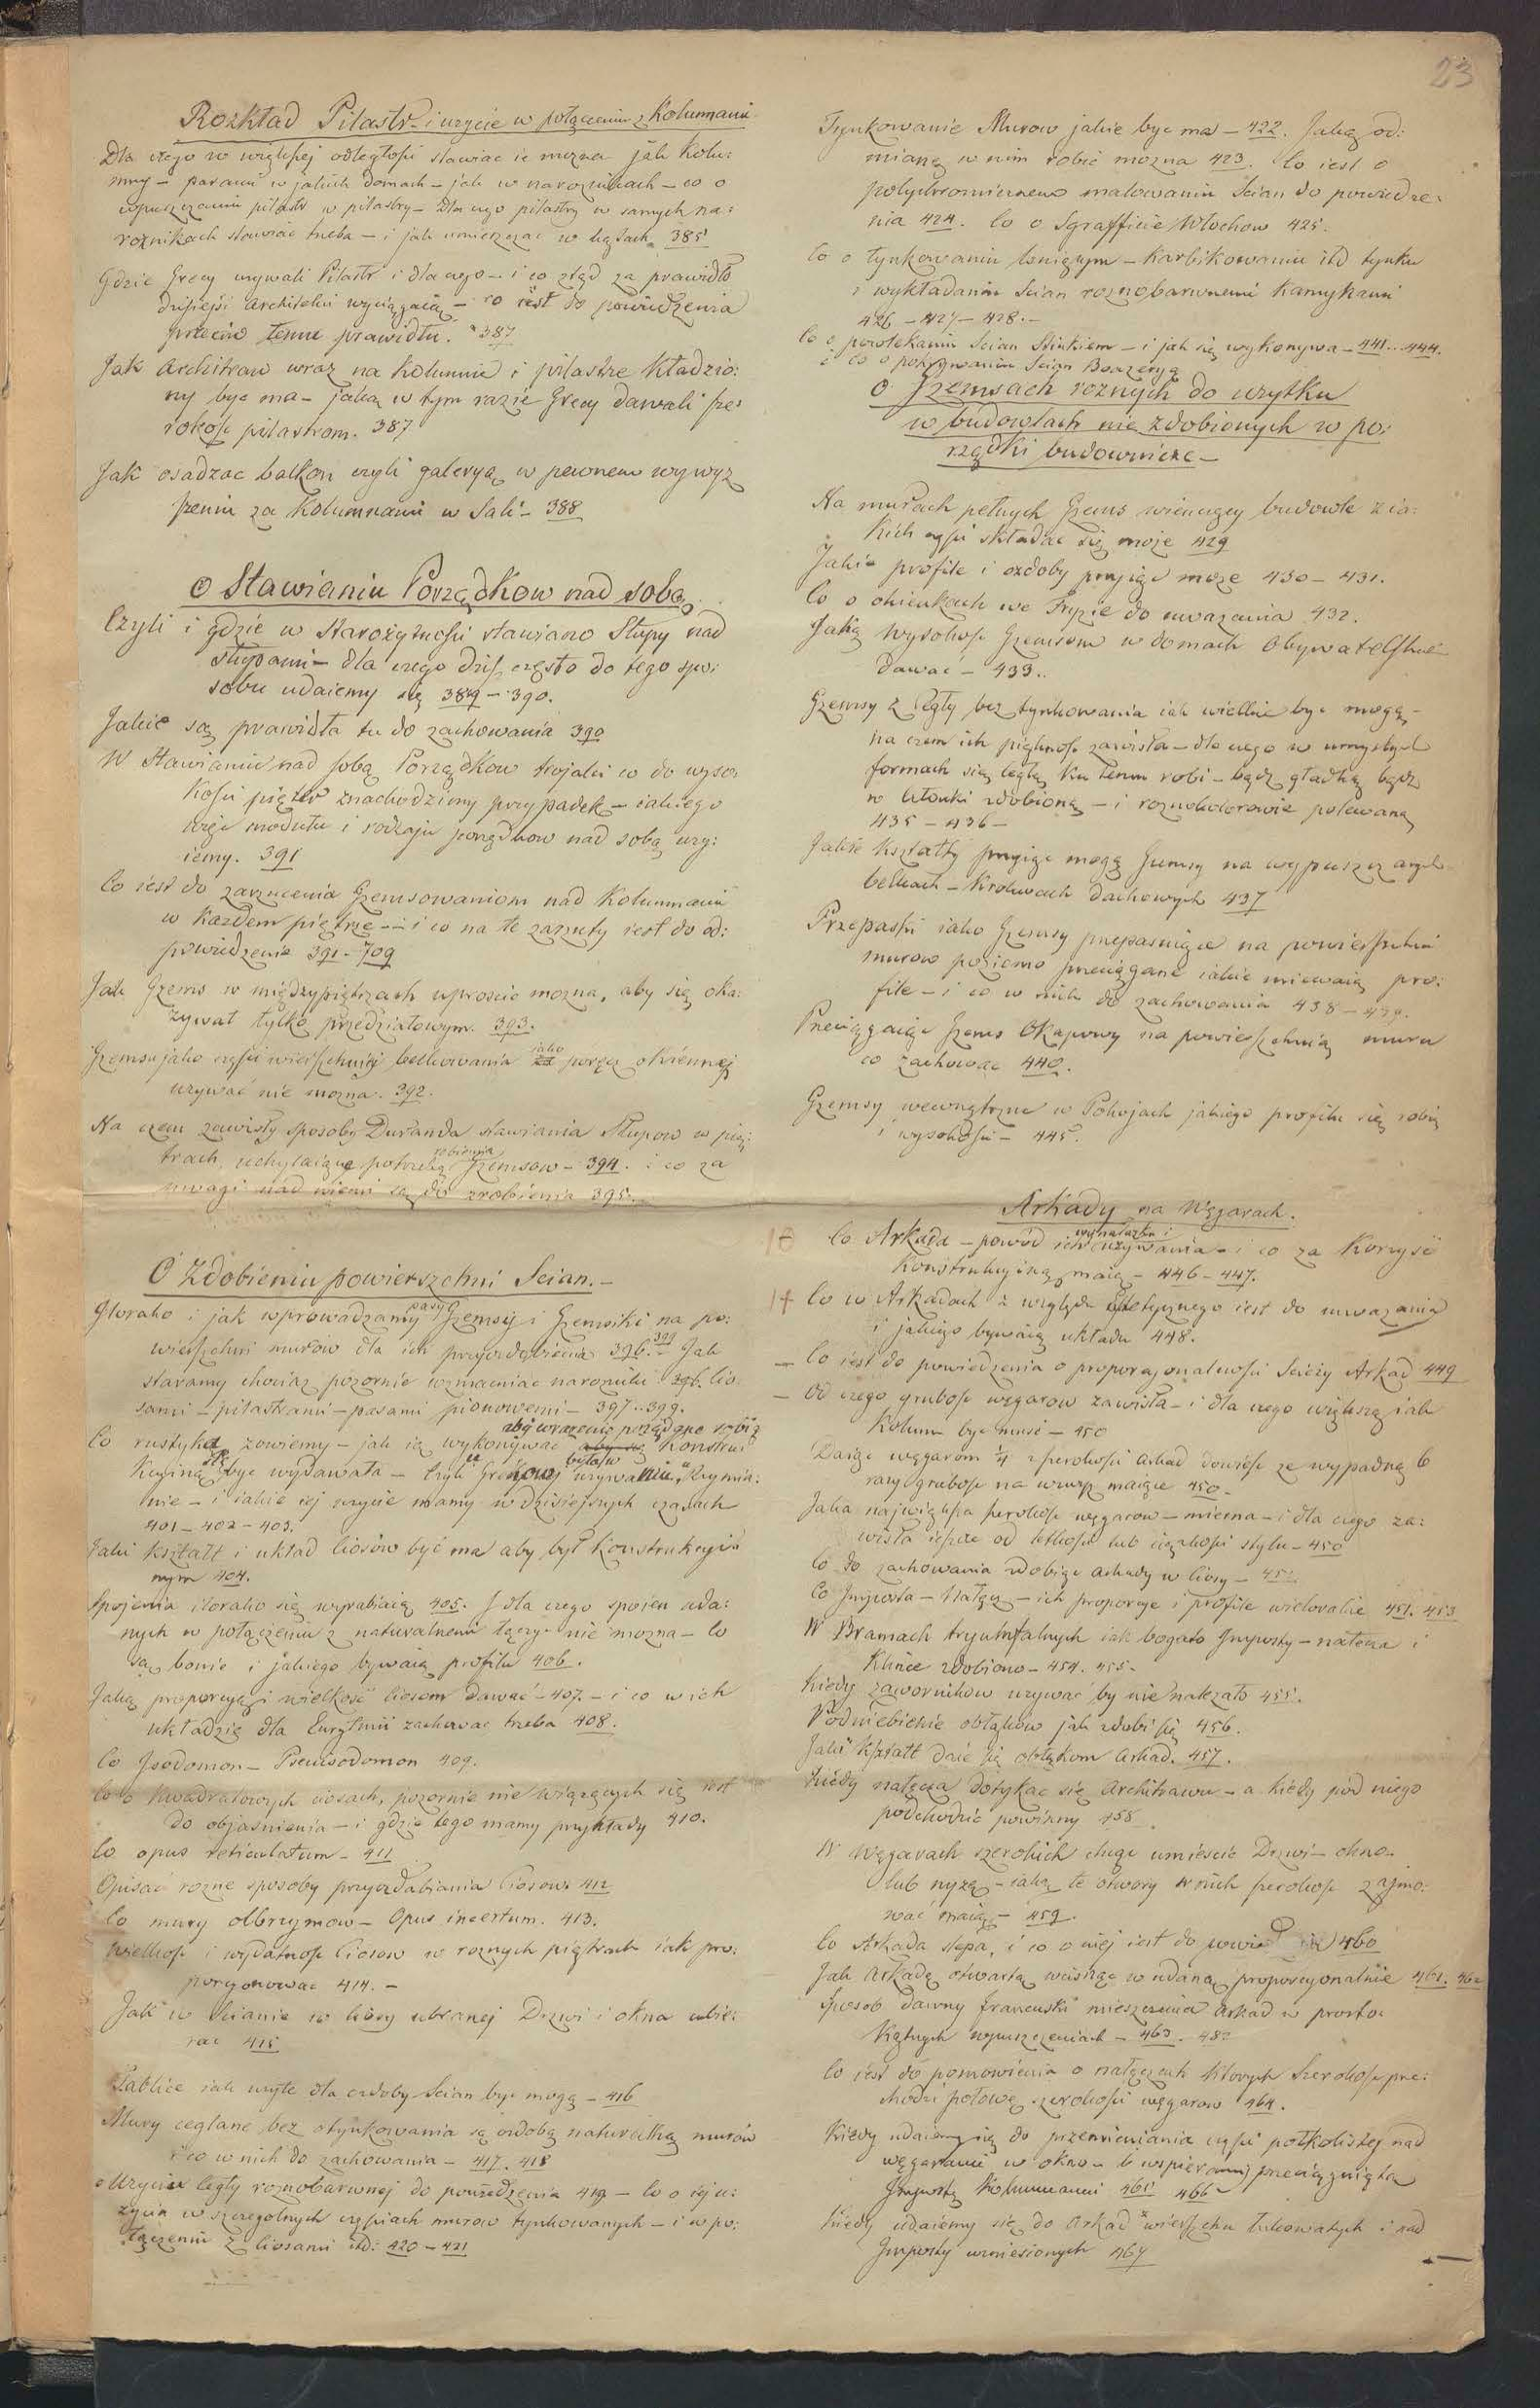 23
Rozkład Pilastr. i uzycie w połączeniu z Kolumnami
Dla czego w większej odległości stawiac ie mozna jak Kolu:
mny – parami w jakich domach – jak w naroznikach – co o
wpuszczaniu pilastr w pilastry – Dla czego pilastry w samych na:
roznikach stawiac trzeba – i jak umieszczac w kątach 385
Gdzie Grecy uzywali Pilastr i dla czego – i co ztąd za prawidło
dzisiejsi Architekci wyciągaią – co iest do powiedzenia
przeciw temu prawidłu. 387
Jak Architraw wraz na Kolumnie i pilastrze Kładzio:
ny byc ma – jaką w tym razie Grecy dawali sze:
rokosc pilastrom. 387
Jak osadzac balkon czyli galeryą w pewnem wywyz
szeniu za Kolumnami w Sali – 388
O Stawianiu Porządkow nad sobą.
Czyli i gdzie w Starożytności stawiano Słupy nad
słupami – dla czego dziś często do tego spo:
sobu udaiemy się 389 – 390.
Jakie są prawidła tu do zachowania 390
W Stawianiu nad sobą Porządkow trojaki co do wyso:
kości pięter znachodzimy przypadek – iakiego
modułu i rodzaju porządkow nad sobą uzy:
iemy. 391
Co iest do zarzucenia Gzemsowaniom nad Kolumnami
w Kazdem piętrze – i co na te zarzuty iest do od:
powiedzenia 391 – 709
Jak Gzems w międzypiętrzach uproscic mozna, aby się oka:
zywał tylko przedziałowym. 393.
Gzemsu jako części wierzchniej belkowania jako poręcz okiennej
uzywać nie mozna. 392.
Na czem zawisły sposoby Duranda stawiania Słupow w pię:
trach, uchylaiące potrzebę robienia Gzemsow – 394. i co za
uwagi nad niemi są do zrobienia 395.
O Zdobieniu powierszchni Scian. –
Jlorako i jak wprowadzamy pasy Gzemsy i Gzemsiki na po:
wierzchni murów dla ich przyozdobienia 396. 399 Jak
staramy chociaz pozornie wzmacniac narozniki 396. Cio
sami – pilastrami – pasami pionowemi – 397..399.
Co rustyką zowiemy – jak ią wykonywac aby wrazenie pożądane robiła aby się Konstruk
Kcyiną byc wydawała – Czyli u Greków była w uzywaniu, Rzymia:
nie – i iakie iej uzycie mamy w dzisiejszych czasach
401 – 402 – 403.
Jaki kształt i układ Ciosów być ma aby był Konstrukcyi
nym 404.
Spojenia ilorako się wyrabiaią 405. J dla czego spoien uda:
nych w połączeniu z naturalnemi łączyc nie mozna – Co
są bonie i jakiego bywaią profilu 406.
Jaką proporcyą i wielkość Ciosom dawać – 407. – i co w ich
układzie dla Eurytmii zachowac trzeba 408.
Co Jsodomon – Pseuisodomon 409.
Co o Kwadratowych ciosach, pozornie nie wiązących się iest
do objasnienia – i gdzie tego mamy przykłady 410.
Co opus reticulatum – 411
Opisać rozne sposoby przyozdabiania Ciosow. 412
Co mury olbrzymow – Opus incertum. 413.
Wielkosc i wydatnosc Ciosow w roznych piętrach iak pro:
porcyonowac 414. –
Jak w Scianie w Ciosy ubranej Drzwi i okna ubie:
rac 415
Tablice iak uzyte dla ozdoby Scian byc mogą – 416
Mury ceglane bez otynkowania są ozdobą naturalną murów
i co w nich do zachowania – 417. 418
o Uzyciu Cegły roznobarwnej do powiedzenia 419 – Co o iej u:
zyciu w szczegolnych częściach murow tynkowanych – i w po:
łączeniu z Ciosami itd: 420 – 421
Tynkowanie Murow jakie byc ma – 422. Jaką od:
mianę w nim robić mozna 423. Co iest o
polychromicznem malowaniu Scian do powiedze:
nia 424. Co o Sgrafficie Włochow 425.
Co o tynkowaniu lsniącym – Karbikowaniu itd tynku
i wykładaniu Scian roznobarwnemi Kamykami
426 – 427 – 428. –
Co o powlekaniu Scian Stiukiem – i jak się wykonywa – 441..444.
i co o pokrywaniu Scian Boazeryą
O Gzemsach roznych do uzytku
w budowlach nie zdobionych w po:
rządki budownicze –
Na murach pełnych Gzems wienczący budowle z ia:
kich części składac się może 429
Jakie profile i ozdoby przyiąc moze 430 – 431.
Co o okienkach we Fryzie do uwazania 432.
Jaką wysokosc Gzemsom w domach Obywatelskich
dawać – 433..
Gzemsy z Cegły bez tynkowania iak wielkie byc mogą –
na czem ich piękność zawisła – dla czego w umyslnych
formach się Cegłę ku temu robi – bądz gładką bądz
w Członki zdobioną – i roznokolorowie polewaną
435 – 436 –
Jakie Kształty przyiąc mogą Gzemsy na wypuszczanych
belkach – Krokwiach dachowych 437
Przepaski iako Gzemsy przepasuiące na powierzchni
murow poziomo przeciągane iakie miewaią pro:
file – i co w nich do zachowania 438 – 439.
Przeciągaiąc Gzems Okapowy na powierzchnią muru
co zachowac 440.
Gzemsy wewnętrzne w Pokojach jakiego profilu się robią
i wysokości – 445.
Arkady na Węgarach.
Co Arkada – powód ich wynalazku i uzywania – i co za Korzysc
Konstrukcyiną maią – 446 – 447.
Co w Arkadach z względu Estetycznego iest do uwazania
i jakiego bywaią układu 448.
— Co iest do powiedzenia o proporcyonalnosci Swiezy Arkad 449
— Od czego grubosc węgarow zawisła – i dla czego większą iak
Kolumn byc musi – 450
Daiąc węgarom ¼ szerokosci Arkad dowieść ze wypadną 6
razy grubosc na wwyz maiące 450 –
Jaka największa szerokosc węgarow – mierna – i dla czego za:
wisła ieszcze od lekkosci lub ciężkości stylu – 450
Co do zachowania zdobiąc arkady w Ciosy – 451
Co Jmposta – Nałęcz – ich proporcye i profile wielorakie 451. 453
W Bramach tryumfalnych iak bogato Jmposty – nałęcza i
Klince zdobiono – 454. 455 –
Kiedy zawornikow uzywac by nie nalezało 455.
Podniebienie obłąków jak zdobi się 456.
Jaki Kształt daie się obłąkom Arkad. 457.
Kiedy nałęcza dotykac się Architrawu – a kiedy pod niego
podchodzić powinny 458
W Węgarach szerokich chcąc umiescic Drzwi – okno –
lub nyzą – iaką te otwory w nich szerokosc zajmo:
wać maią – 459.
Co Arkada slepa, i co o niej iest do powie 460
Jak Arkadę otwartą wciskac w udaną proporcyonalnie 461. 462
Sposob dawny francuski mieszczenia Arkad w prosto:
kątnych wpuszczeniach – 463.
Co iest do pomowienia o nałęczach których Szerokosc prze:
chodzi połowę szerokości węgarow 464.
Kiedy udaiemy się do przemieniania części połkolistej nad
węgarami w okno – b wspierany przeciągniętą
Jmpostą Kolumnami 465 466 –
Kiedy udaiemy się do Arkad z wierzchu łukowatych i nad
Jmposty wzniesionych 467